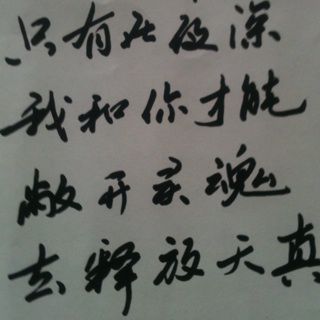 只有在夜深
我和你才能
敞开灵魂
去释放天真